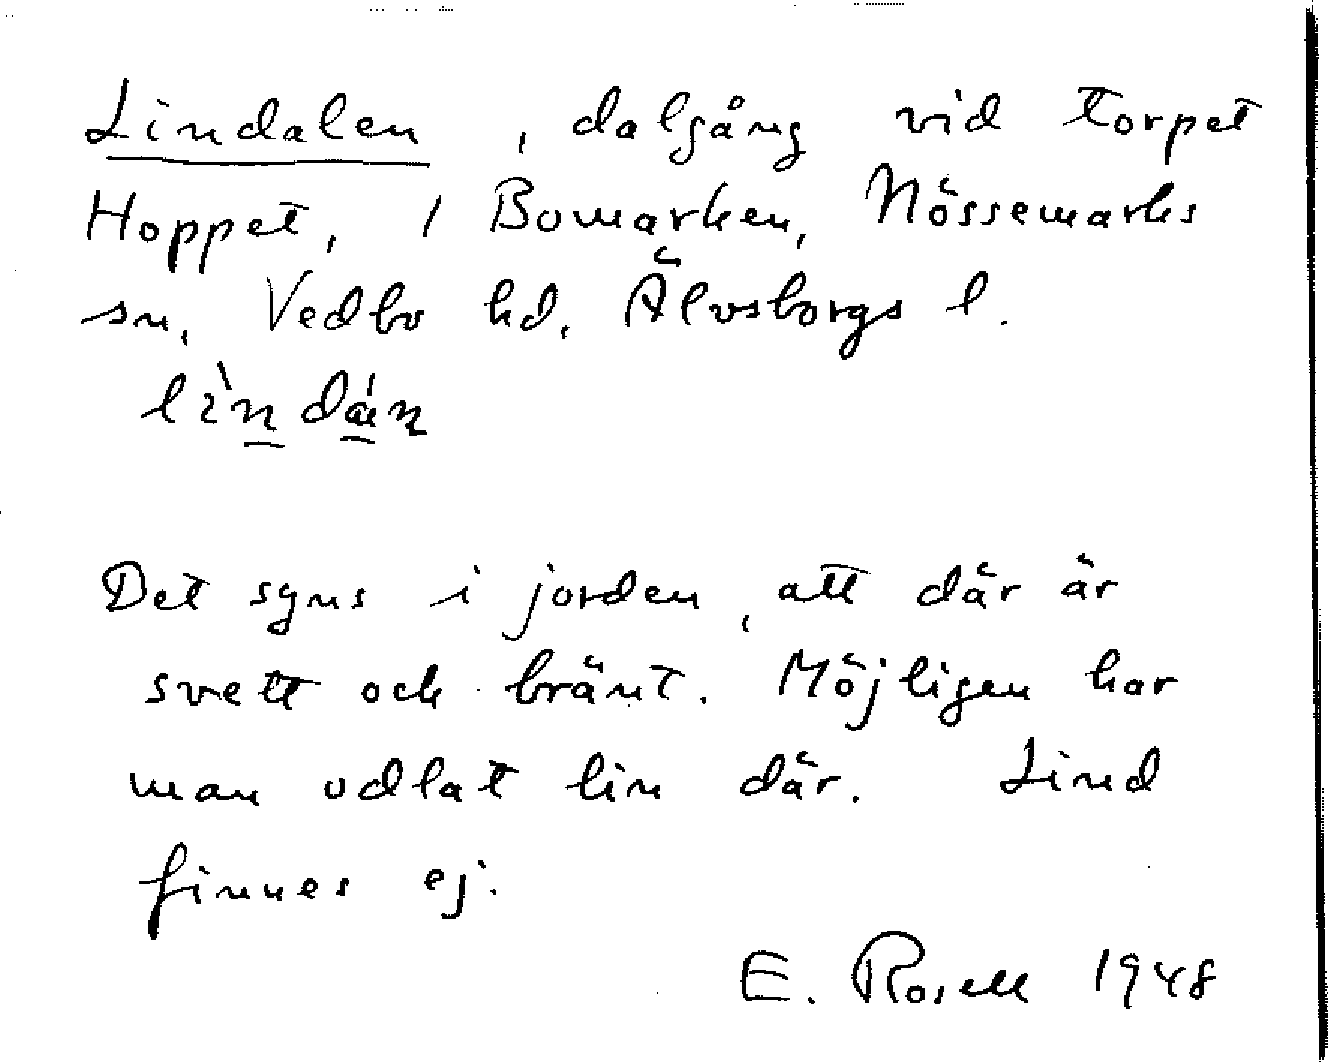 Lindalen, dalgång vid torpet
Hoppet, / Bomarken, Nössemarks
sn, Vedbo hd, Älvsborgs l.
lìndán
Det syns i jorden, att där är
svett och bränt. Möjligen har
man odlat lin där. Lind
finnes ej.
E. Rosell 1948